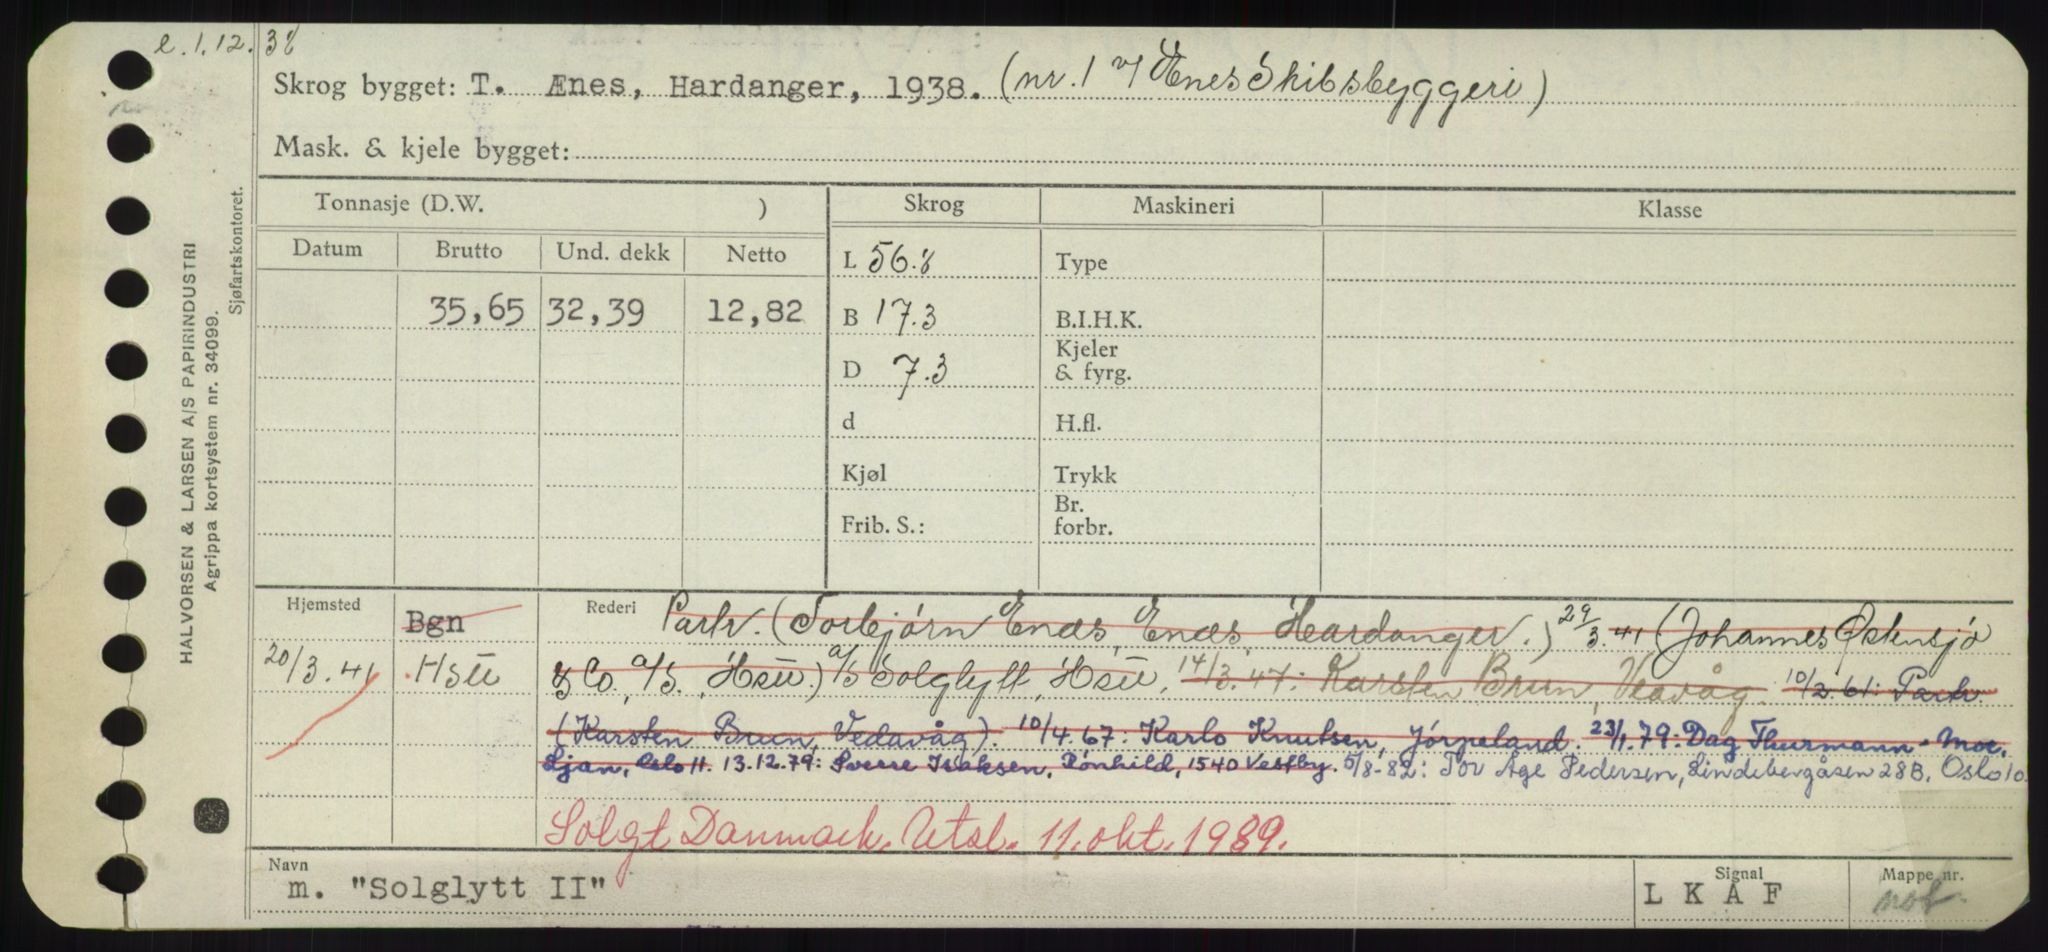 e. 1.12.38
Skrog bygget: T. Ænes, Hardanger, 1938. (nr. 1 v/ Ænes Skibsbyggeri)
Mask. & kjele bygget:
Tonnasje (D.W. )
Skrog
Maskineri
Klasse
Datum Brutto Und. dekk Netto
35,65 32,39 12,82
L 56.8
B 17.3
D 7.3
d
Kjøl
Frib. S.:
Type
B.I.H.K.
Kjeler
& fyrg.
H.fl.
Trykk
Br.
forbr.
Hjemsted Bgn
20/3.41 Hsu
Rederi Partr. (Torbjørn Enæs, Enæs, Hardanger.) 29/3.41 (Johannes Østensjø
& Co. a/s., Hsu) a/s Solglytt, Hsu. 14/3.47: Karsten Brun, Veavåg. 10/2.61: Partr.
(Karsten Brun, Vedavåg). 10/4.67: Karlo Knutsen, Jørpeland. 23/1.79: Dag Thurmann-Moe,
Ljan, Oslo 11. 13.12.79: Sverre Isaksen, Rønhild, 1540 Vestby. 5/8-82: Tor Åge Pedersen, Lindebergåsen 28B, Oslo 10.
Solgt Danmark. Utsl. 11. okt. 1989.
Navn
m. "Solglytt II"
Signal
L K A F
Mappe nr.
not.
HALVORSEN & LARSEN A/S PAPIRINDUSTRI
Agrippa kortsystem nr. 34099.
Sjøfartskontoret.